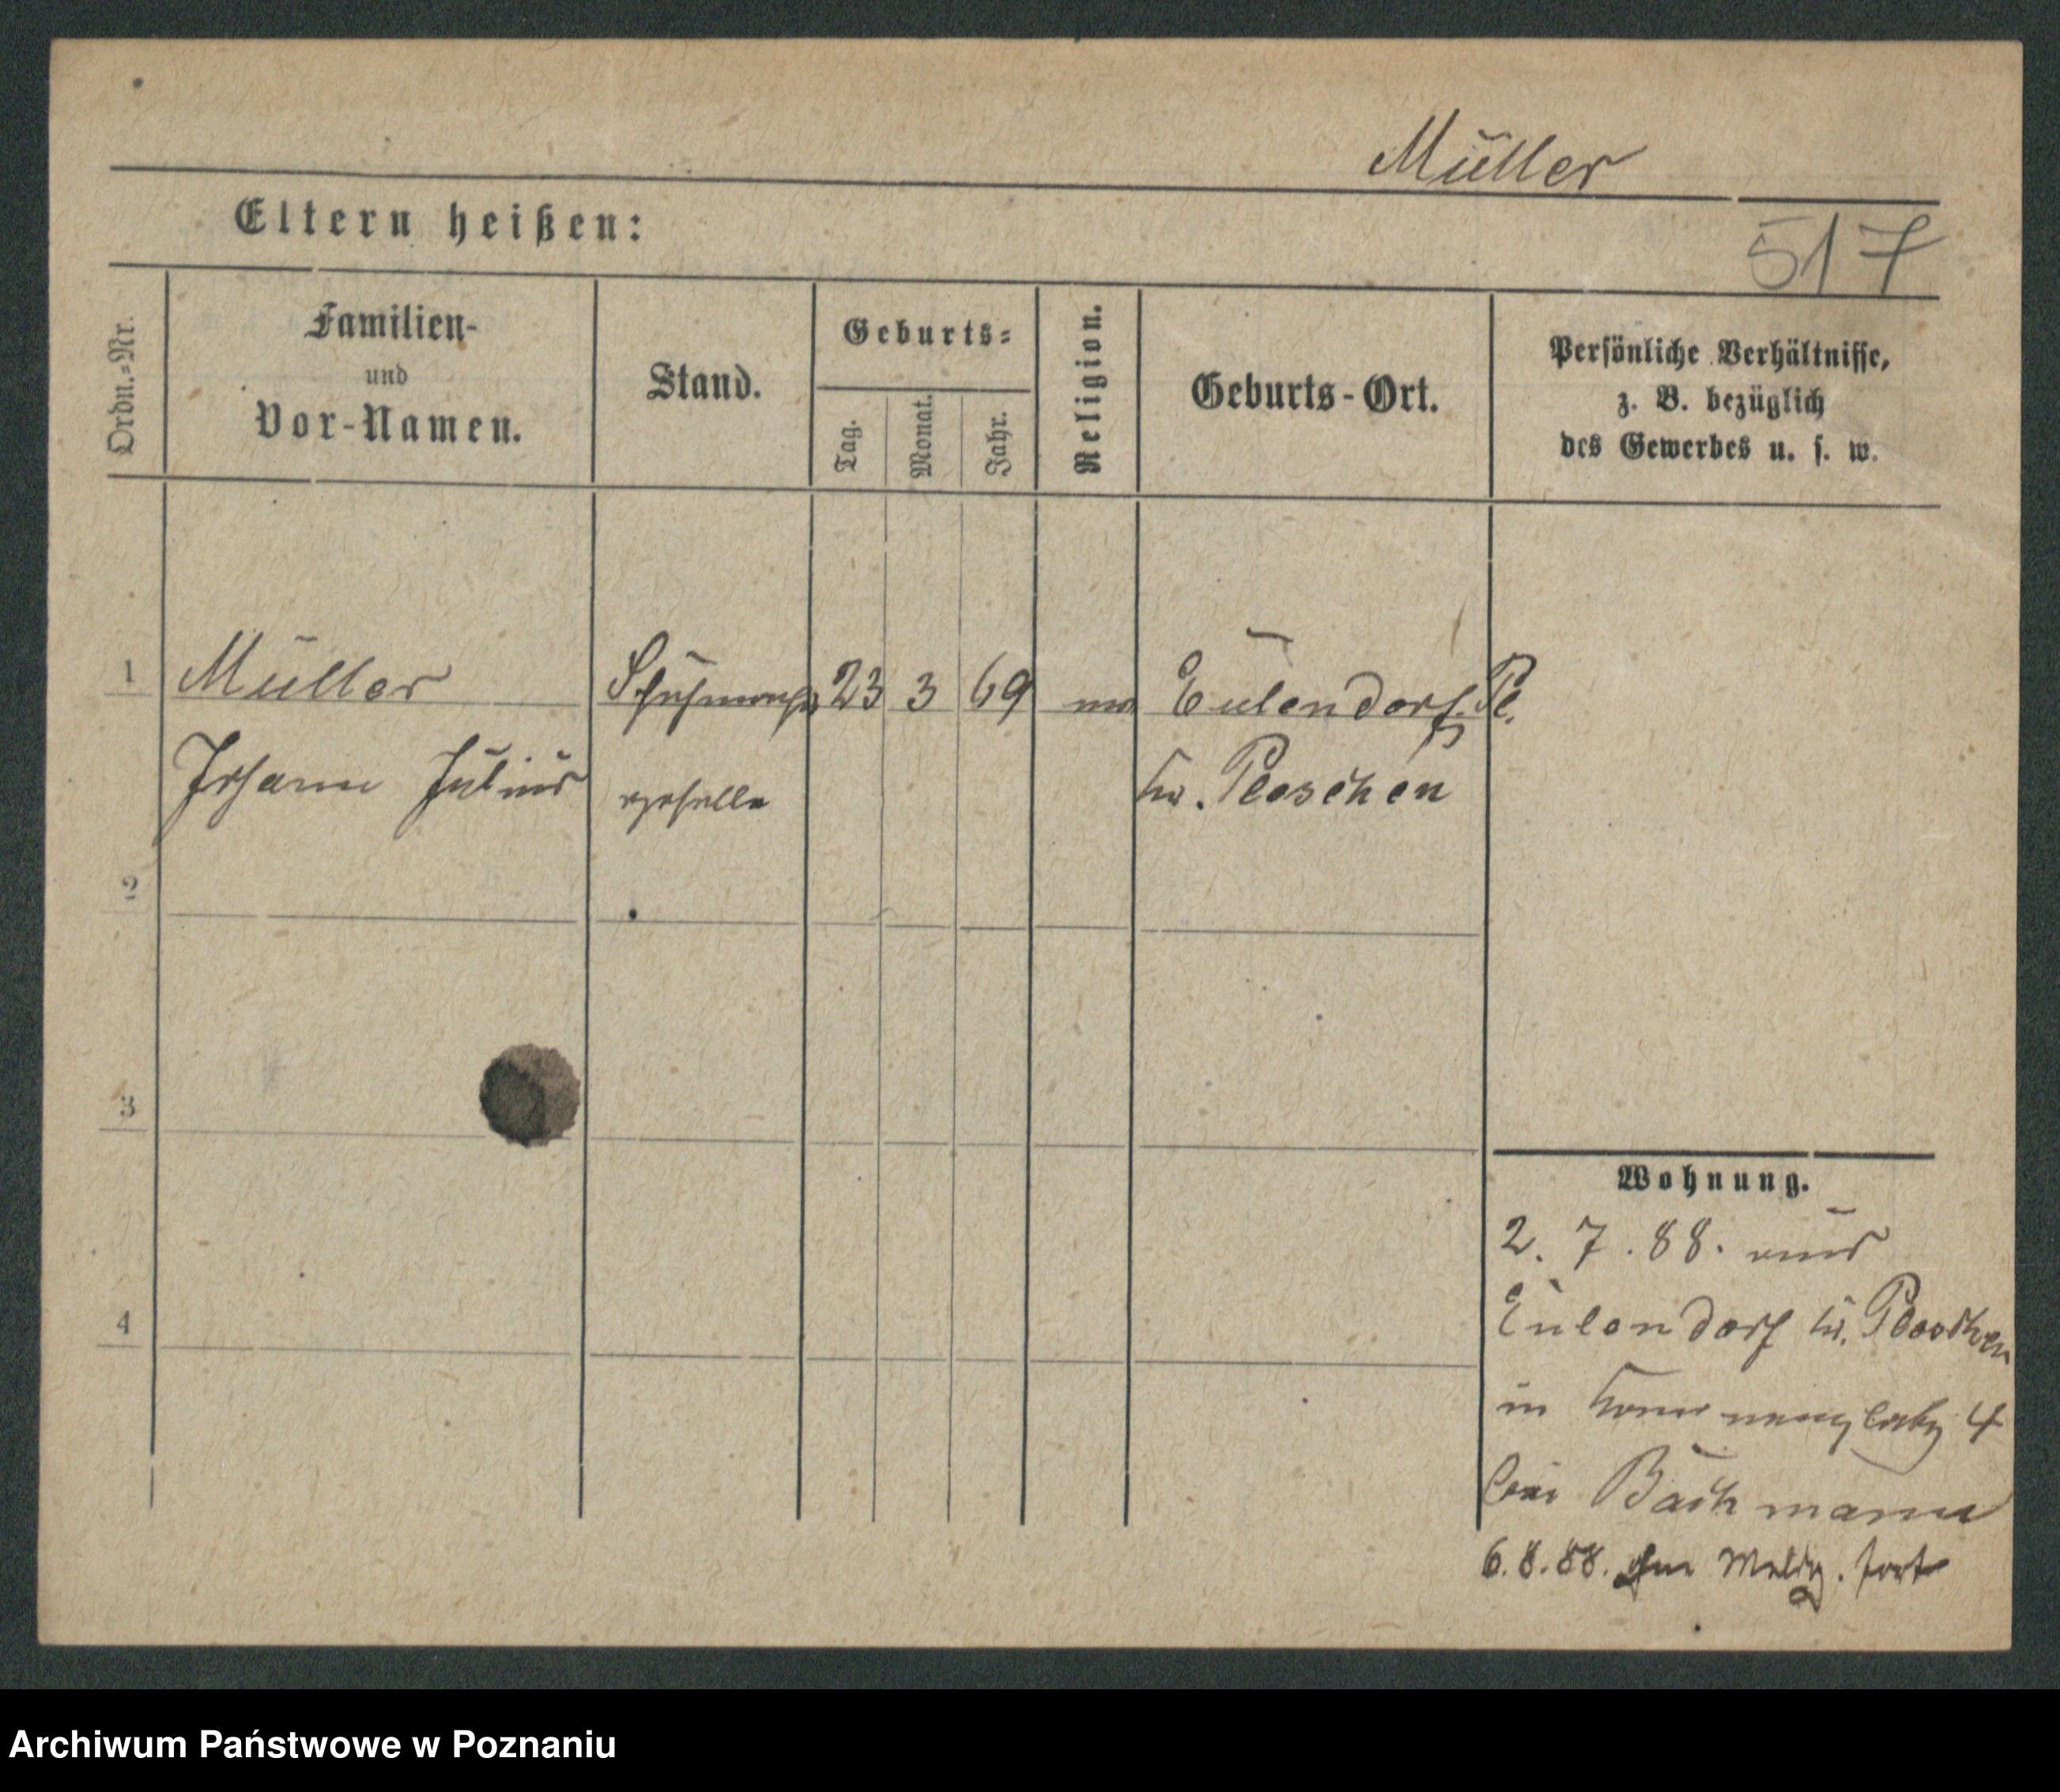 Müller
Eltern heißen:
517
Ordn.-Nr.
Familien-
und
Vor-Namen.
Stand.
Geburts-
Tag.
Monat.
Jahr.
Religion.
Geburts-Ort.
Persönliche Verhältnisse,
z. B. bezüglich
des Gewerbes u. s. w.
1 Müller Schuhmacher 23 3 69 Eulendorf
Johann Julius geselle Kr. Pleschen
2
3
4
Wohnung.
2. 7. 88. aus
Eulendorf Kr. Pleschen
in 4
bei Bachmann
6. 8. 88. ohne Meldg. fort
Archiwum Państwowe w Poznaniu